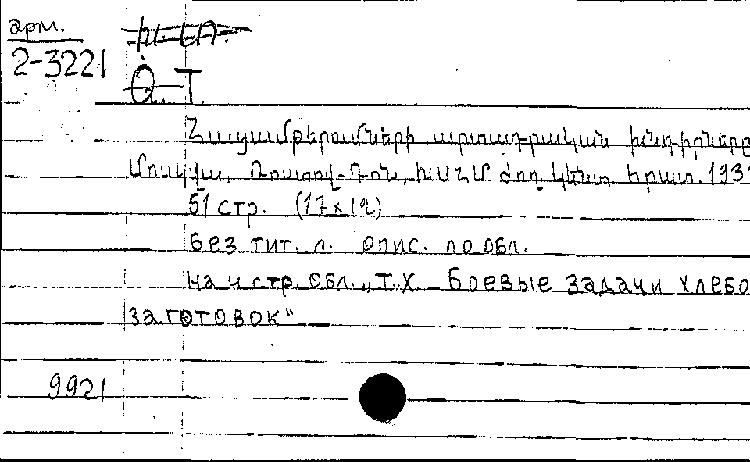 арм.
2-3221
Թ. Т.
Հացամթերումների արտադրական խնդիրները
Մոսկվա, Ռոստով-Դոն, ԽՍՀՄ ժող. կենտ. հրատ. 193
51 стр. (17x12)
без тит. л. опис. по обл.
на 4 стр обл. „Т.Х. Боевые задачи хлебо
заготовок"
9921